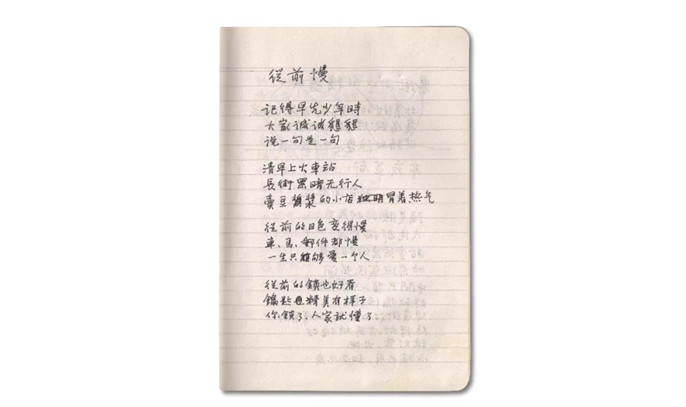 從前慢
记得早先少年時
大家诚诚懇懇
说一句是一句
清早上火車站
長街黑暗无行人
賣豆漿的小店冒着热气
從前的日色變得慢
車、馬、郵件都慢
一生只够爱一个人
從前的鎖也好看
鑰匙精美有樣子
你鎖了,人家就懂了